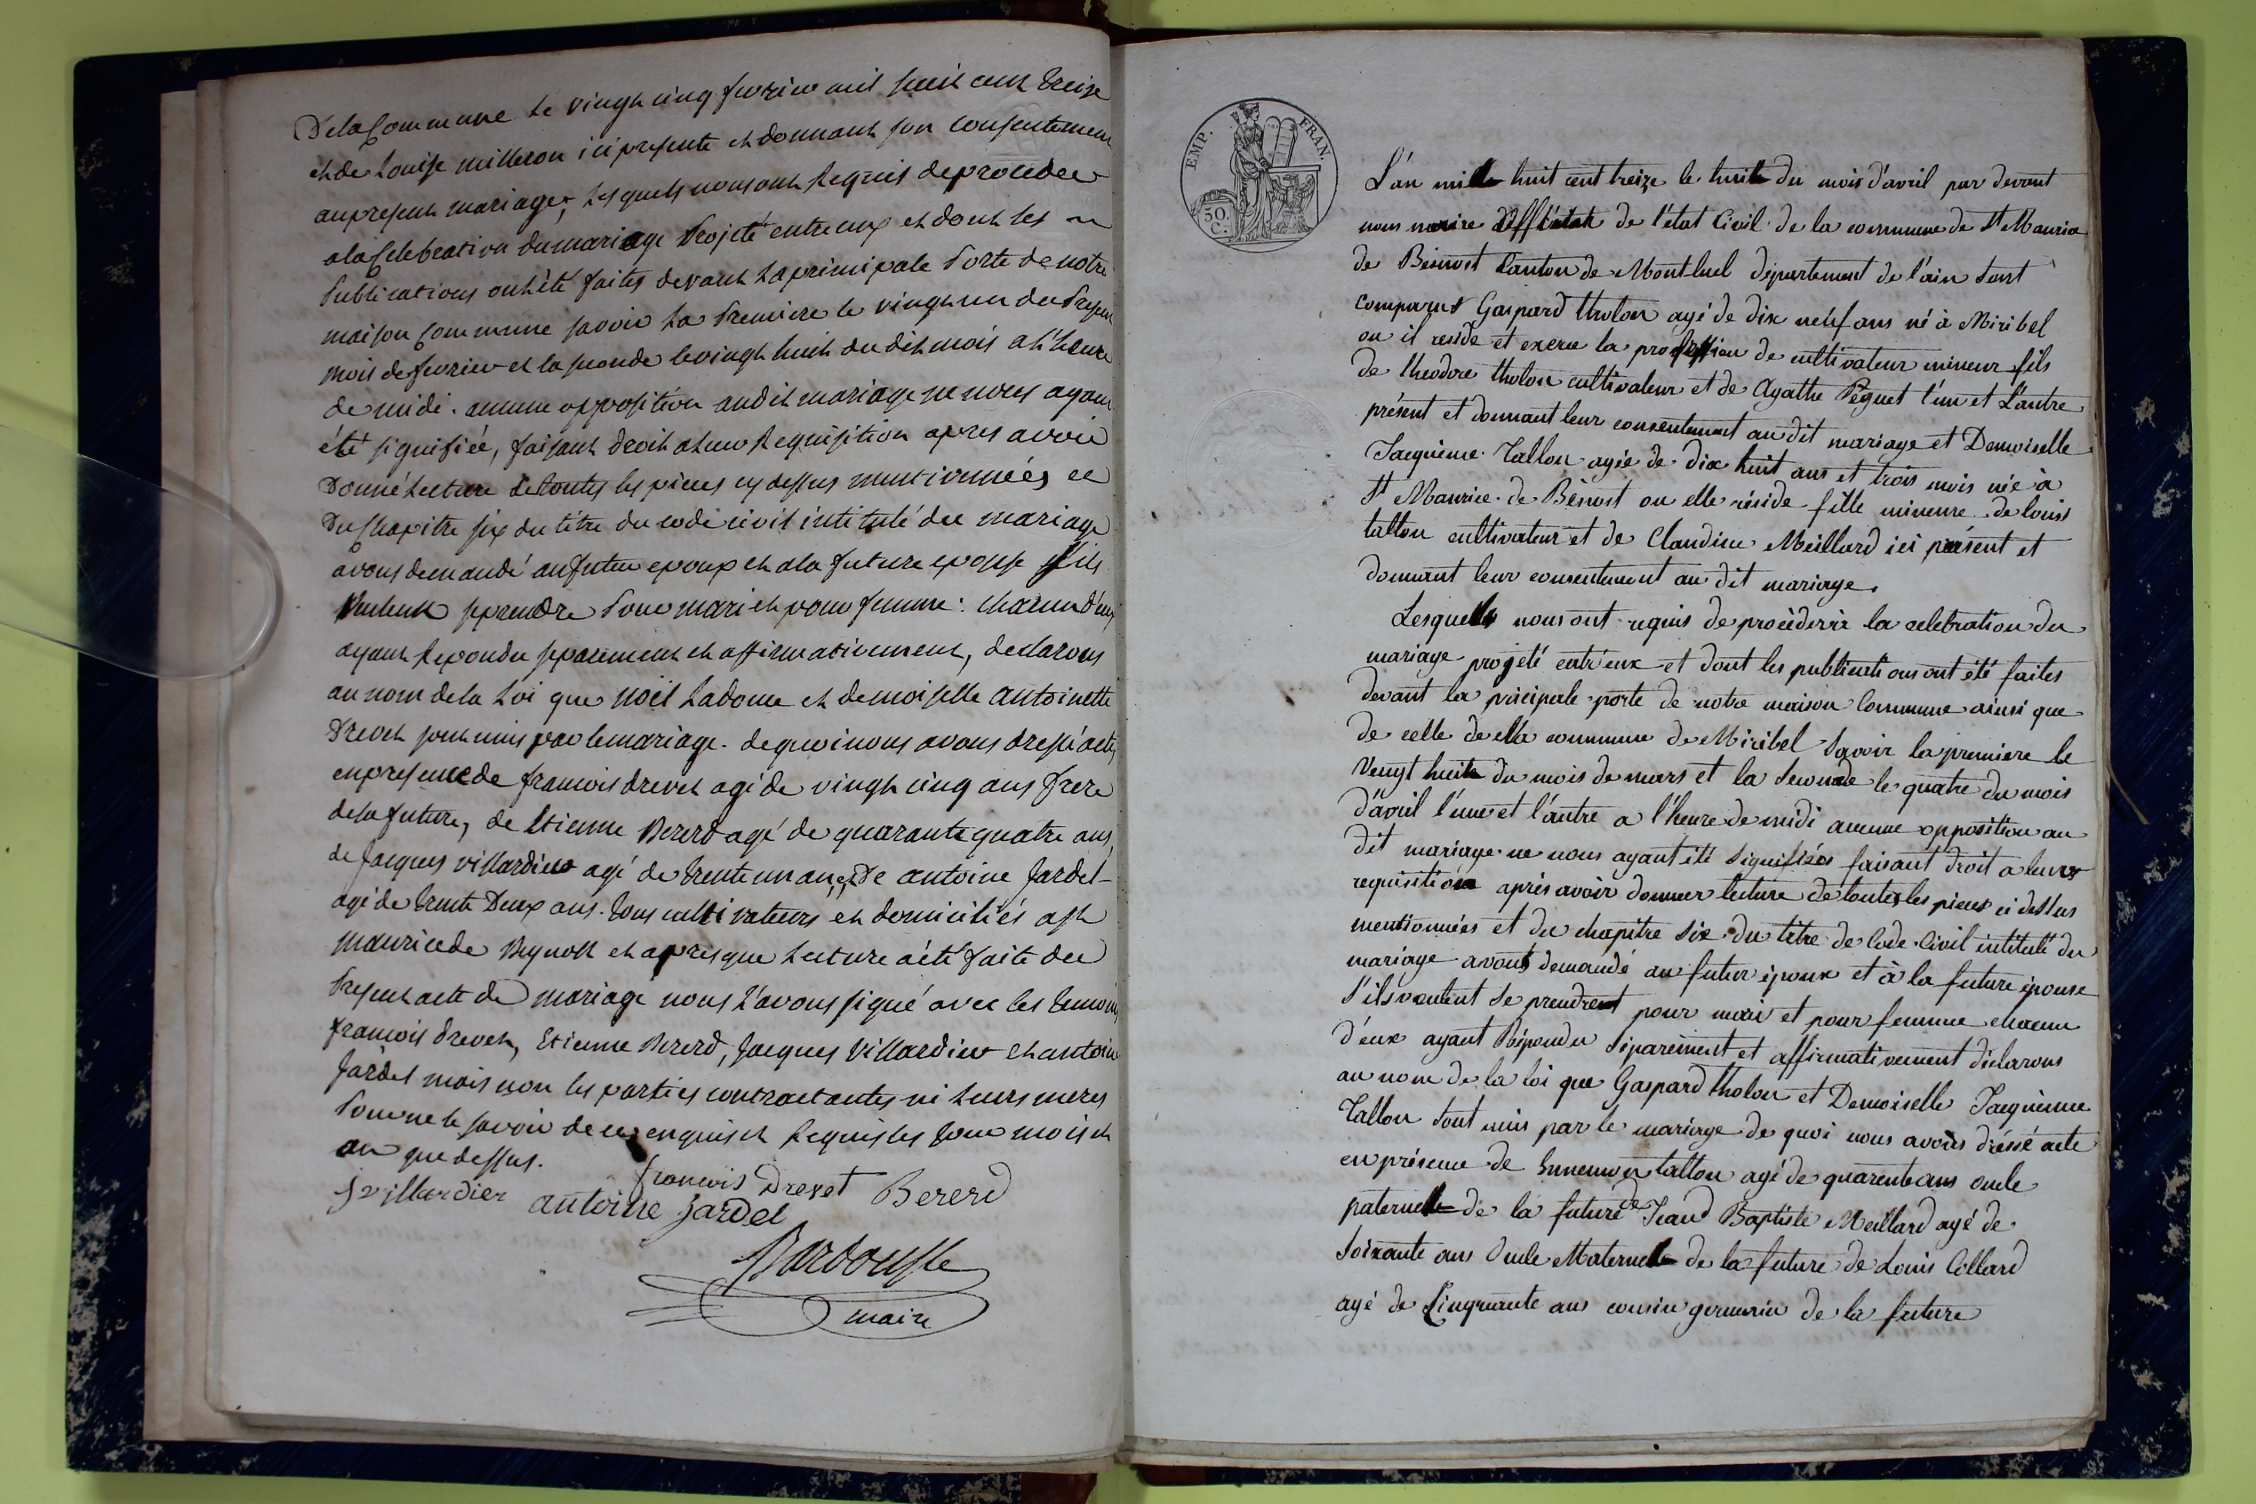 De la Commune le vingt cinq fevrier mil huit cent treize
et de Louise milleron ici presente et donnant son consentement
au present mariage, Lesquels nous ont Requis de proceder
a la Celebration du mariage Projeté entre eux et dont les
Publications ont été faites devant La principale Porte de notre
maison Commune savoir La Premiere le vingt un du Present
mois de fevrier et la seconde le vingt huit du dit mois a l'heure
de midi. aucune opposition audit mariage ne nous ayant
été signifiée, faisant droit a Leur Requisition apres avoir
Donné Lecture de toutes les pieces cy dessus mentionnées et
Du Chapitre six du titre du code civil intitulé du mariage
avons demandé au futur epoux et a la future epouse s'ils
Veulent se prendre Pour mari et pour femme : chacun d'eux
ayant Repondu separement et affirmativement, declarons
au nom de la Loi que Noël Ladoue et demoiselle antoinette
Drevet sont unis par le mariage. de quoi nous avons dressé acte,
en presence de francois drevet agé de vingt cinq ans frere
de la future, de Etienne Bererd agé de quarante quatre ans,
de Jacques villardier agé de trente un an, et De antoine Jardel
agé de trente Deux ans. tous cultivateurs et domiciliés a St
Maurice de Beynost et apres que Lecture a été faite du
Present acte de mariage nous L'avons signé avec les temoins
francois Drevet, Etienne Bererd, Jacques Villardier et antoine
Jardel mais non les parties contractantes ni Leurs meres
Pour ne le savoir de ce enquis et Requis les Jour mois et
an que dessus.
francois Drevet Bererd
J villardier antoine Jardel
Bardousse
maire
EMP. FRAN.
50. C.
L'an mille huit cent treize le huit du mois d'avril par devant
nous maire de l'état Civil de la commune de St Maurice
de Beinost Canton de Montluel département de l'ain sont
comparus Gaspard tholon agé de dix neuf ans né à Miribel
ou il reside et exerce la profession de cultivateur mineur fils
de theodore tholon cultivateur et de Agathe Péguet l'un et L'autre
présent et donnant leur consentement au dit mariage et Demoiselle
Jacquème Tallon agée de dix huit ans et trois mois née à
St Maurice de Bèinost ou elle réside fille mineure de louis
tallon cultivateur et de Claudine Meillard ici présent et
donnant leur consentement au dit mariage.
Lesquells nous ont requis de procéder à la celebration du
mariage projeté entr'eux et dont les publications ont été faites
devant la pricipale porte de notre maison Commune ainsi que
de celle de la commune de Miribel Savoir la premiere le
Vengt huit du mois de mars et la Seconde le quatre du mois
d'avril l'une et l'autre a l'heure de midi aucune opposition au
dit mariage ne nous ayant été Signifiées faisant droit a leurs
requisition après avoir donner lecture de toutes les pieces ci dessus
mentionnées et du chapitre Six du titre de Code Civil intitulé du
mariage avons demandé au futur époux et à la future épouse
S'ils veulent Se prendrent pour mari et pour femme chacun
d'eux ayant Répondu Séparément et affirmativement déclarons
au nom de la loi que Gaspard tholon et Demoiselle Jacquème
Tallon Sont unis par le mariage de quoi nous avons dréssé acte
en présence de Ennemon tallon agé de quarente ans oncle
paternelle de la future de Jean Baptiste Meillard agé de
Soixante ans Oncle Maternelle de la future de Louis Collard
agé de Cinquante ans cousin germain de la future